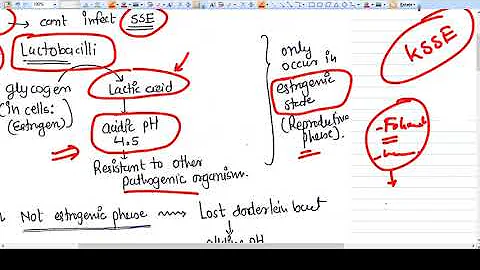 → cant infect SSE
Lactobacilli
glycogen
(in cells:
(Estrogen)
Lactic acid
acidic pH
4.5
Resistant to other
pathogenic organism.
only
occur in
estrogenic
state
(Reproductive
phase).
KSSE
Not estrogenic phase
Lost doderlein bact